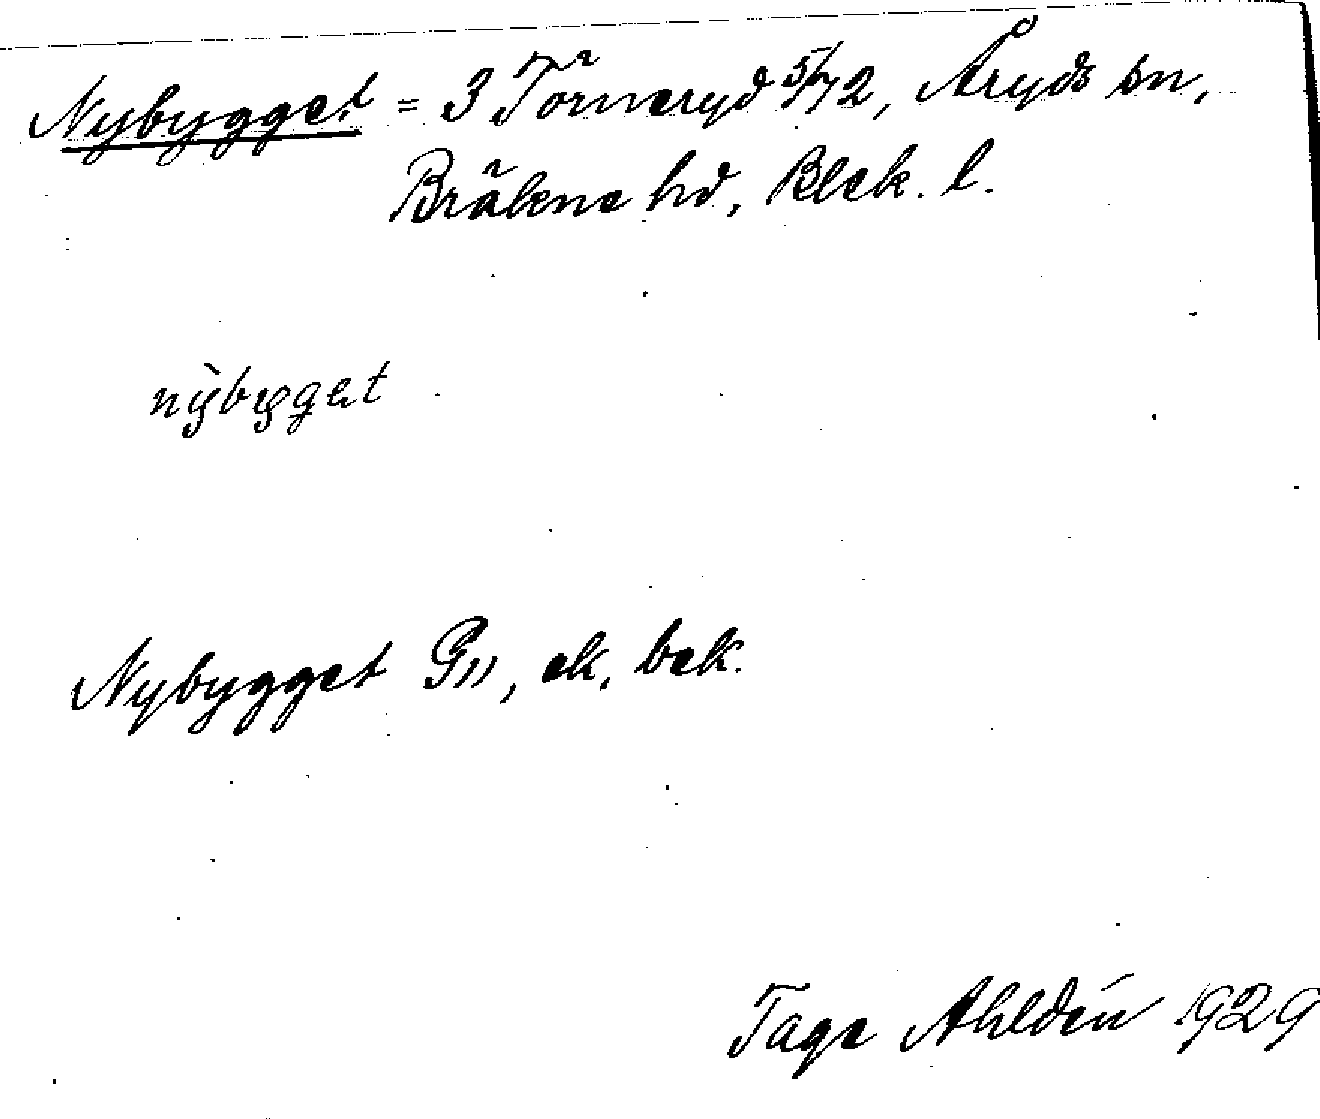 Nybygget = 3 Törneryd 5/72, Åryds sn,
Bräkne hd, Blek. l.
nỳbygget
Nybygget G11, ek, bek.
Tage Ahldén 1929